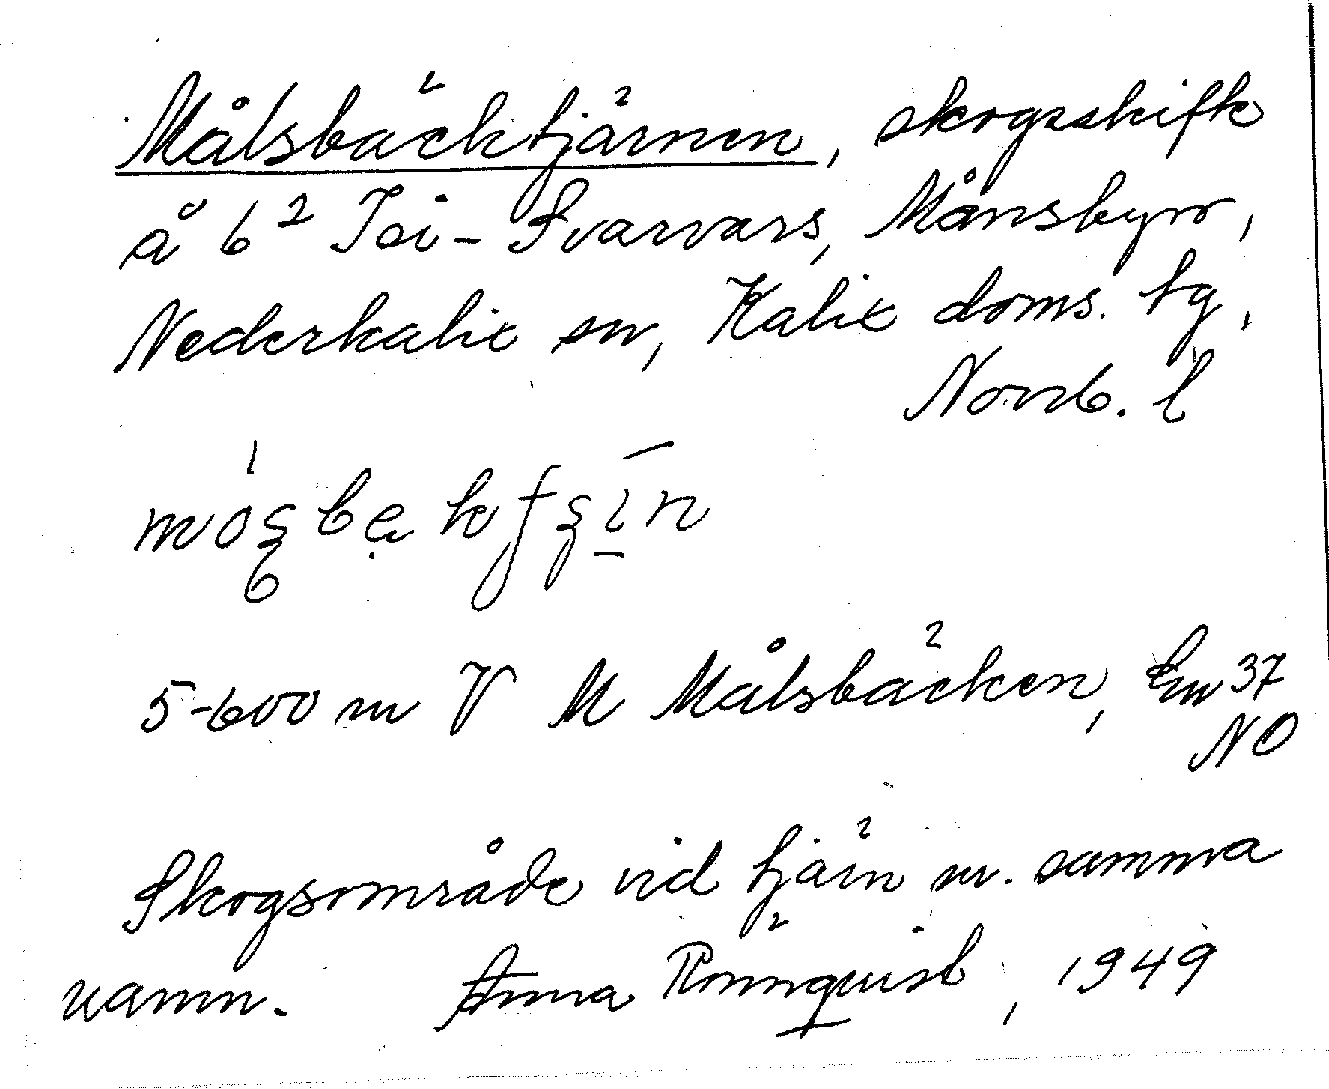 Målsbäcktjärnen, skogsskifte
å 6² Joi-Svarvars, Månsbyn,
Nederkalix sn, Kalix doms. tg,
Norrb. l
5-600 m V M Målsbäcken, Em 37
NO
Skogsområde vid tjärn m. samma
namn. Anna Rönnquist, 1949